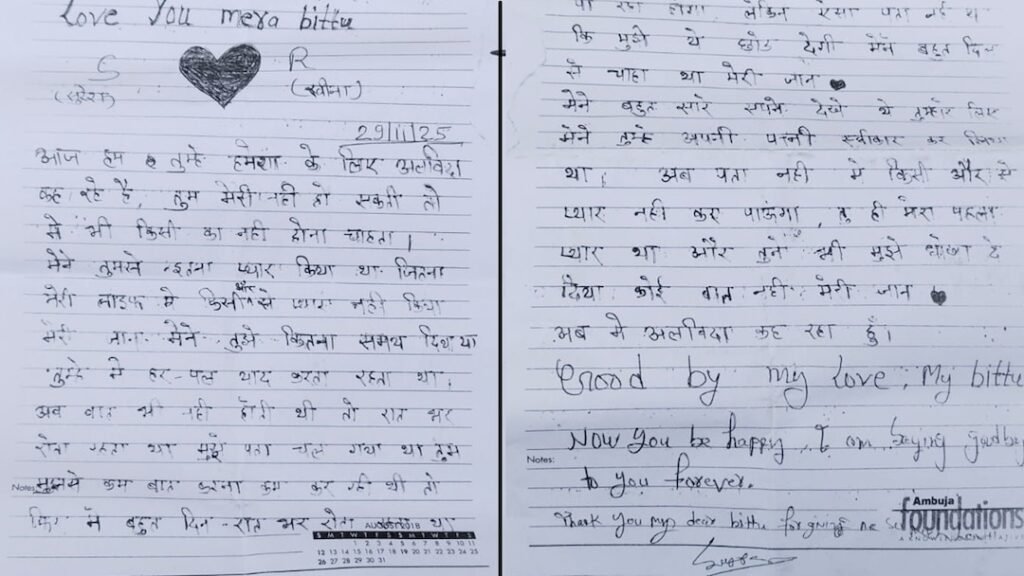 Love You mera bittu
S R
(सुरेश) (सीमा)
29/11/25
आज हम तुम्हे हमेशा के लिए अलविदा
कह रहे है, तुम मेरी नही हो सकती तो
मे भी किसी का नही होना चाहता।
मेने तुमसे इतना प्यार किया था जितना
मेरी लाइफ मे किसी और से प्यार नही किया
मेरी जान मेने तुझे कितना समय दिया था
तुम्हे मे हर-पल याद करता रहता था।
अब बात भी नही होती थी तो रात भर
रोता रहता था मुझे पता चल गया था तुम
Notes: मुझसे कम बात करना कम कर रही थी तो
मे बहुत दिन रात भर रोता था
AUGUST 2018
S M T W T F S S M T W T F S
1 2 3 4 5 6 7 8 9 10 11
12 13 14 15 16 17 18 19 20 21 22 23 24 25
26 27 28 29 30 31
लेकिन ऐसा पता नही था
कि मुझे ये छोड देगी मेने बहुत दिल
से चाहा था मेरी जान
मेने बहुत सारे सपने देखे थे तुम्हारे लिए
मेने तुम्हे अपनी पत्नी स्वीकार कर लिया
था। अब पता नही मे किसी और से
प्यार नही कर पाऊंगा, तु ही मेरा पहला
प्यार था और तुने भी मुझे धोखा दे
दिया कोई बात नही मेरी जान
अब मे अलविदा कह रहा हुँ।
Good by my love, My bittu
Now You be happy, I am saying goodby
Notes: to you forever.
Thank You my dear bittu for giving me
Ambuja
foundations